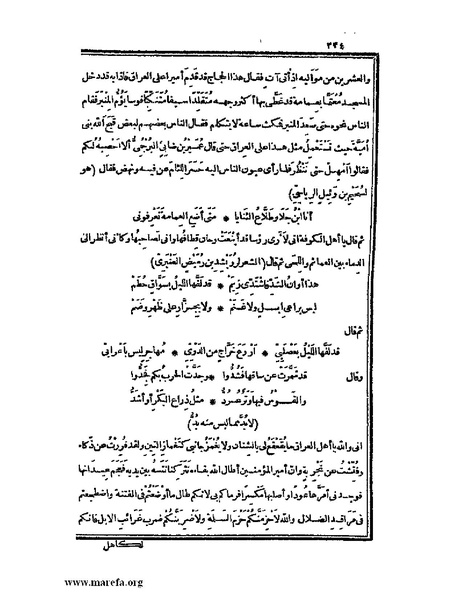 ٣٣٤
والعشرين من مواليه اذ أتى آت فقال هذا الحجاج قد قدم أميرا على العراق فاذا به قد دخل
المسجد معتمًا بعمامة قد غطى بها أكثر وجهه متقلدا سيفا متنكبًا قوسا يؤم المنبر فقام
الناس نحوه حتى صعد المنبر فمكث ساعة لا يتكلم فقال الناس بعضهم لبعض قبح الله بنى
أمية حيث تستعمل مثل هذا على العراق حتى قال عمير بن ضابئ البرجمى ألا أحصبه لكم
فقالوا أمهل حتى ننظر فلما رأى عيون الناس اليه حسر اللثام عن فيه ونهض فقال (هو
لسحيم بن وثيل الرياحى)
أنا ابن جلا وطلاع الثنايا * متى أضع العمامة تعرفونى
ثم قال يا أهل الكوفة انى لأرى رؤسا قد أينعت وحان قطافها وانى لصاحبها وكأنى أنظر الى
الدماء بين العمائم واللحى ثم قال (الشعر لرويشد بن رميض العنبرى)
هذا أوان الشد فاشتدى زيم * قد لفها الليل بسواق حطم
ليس براعى ابل ولا غنم * ولا بجزار على ظهر وضم
ثم قال
قد لفها الليل بعصلبى * أروع خراج من الدوى * مهاجر ليس بأعرابى
وقال قد شمرت عن ساقها فشدوا * وجدت الحرب بكم فجدوا
والقوس فيها وتر عرد * مثل ذراع البكر أو أشد
(لا بد مما ليس منه بد)
انى والله يا أهل العراق ما يقعقع لى بالشنان ولا يغمز جانبى كتغماز التين ولقد فررت عن ذكاء
وفتشت عن تجربة وان أمير المؤمنين أطال الله بقاءه نثر كنانته بين يديه فعجم عيدانها
فوجدنى أمرها عودا وأصلبها مكسرا فرماكم بى لانكم طالما أوضعتم فى الفتنة واضطجعتم
فى مراقد الضلال والله لاحزمنكم حزم السلمة ولأضربنكم ضرب غرائب الابل فانكم
لكأهل
www.marefa.org